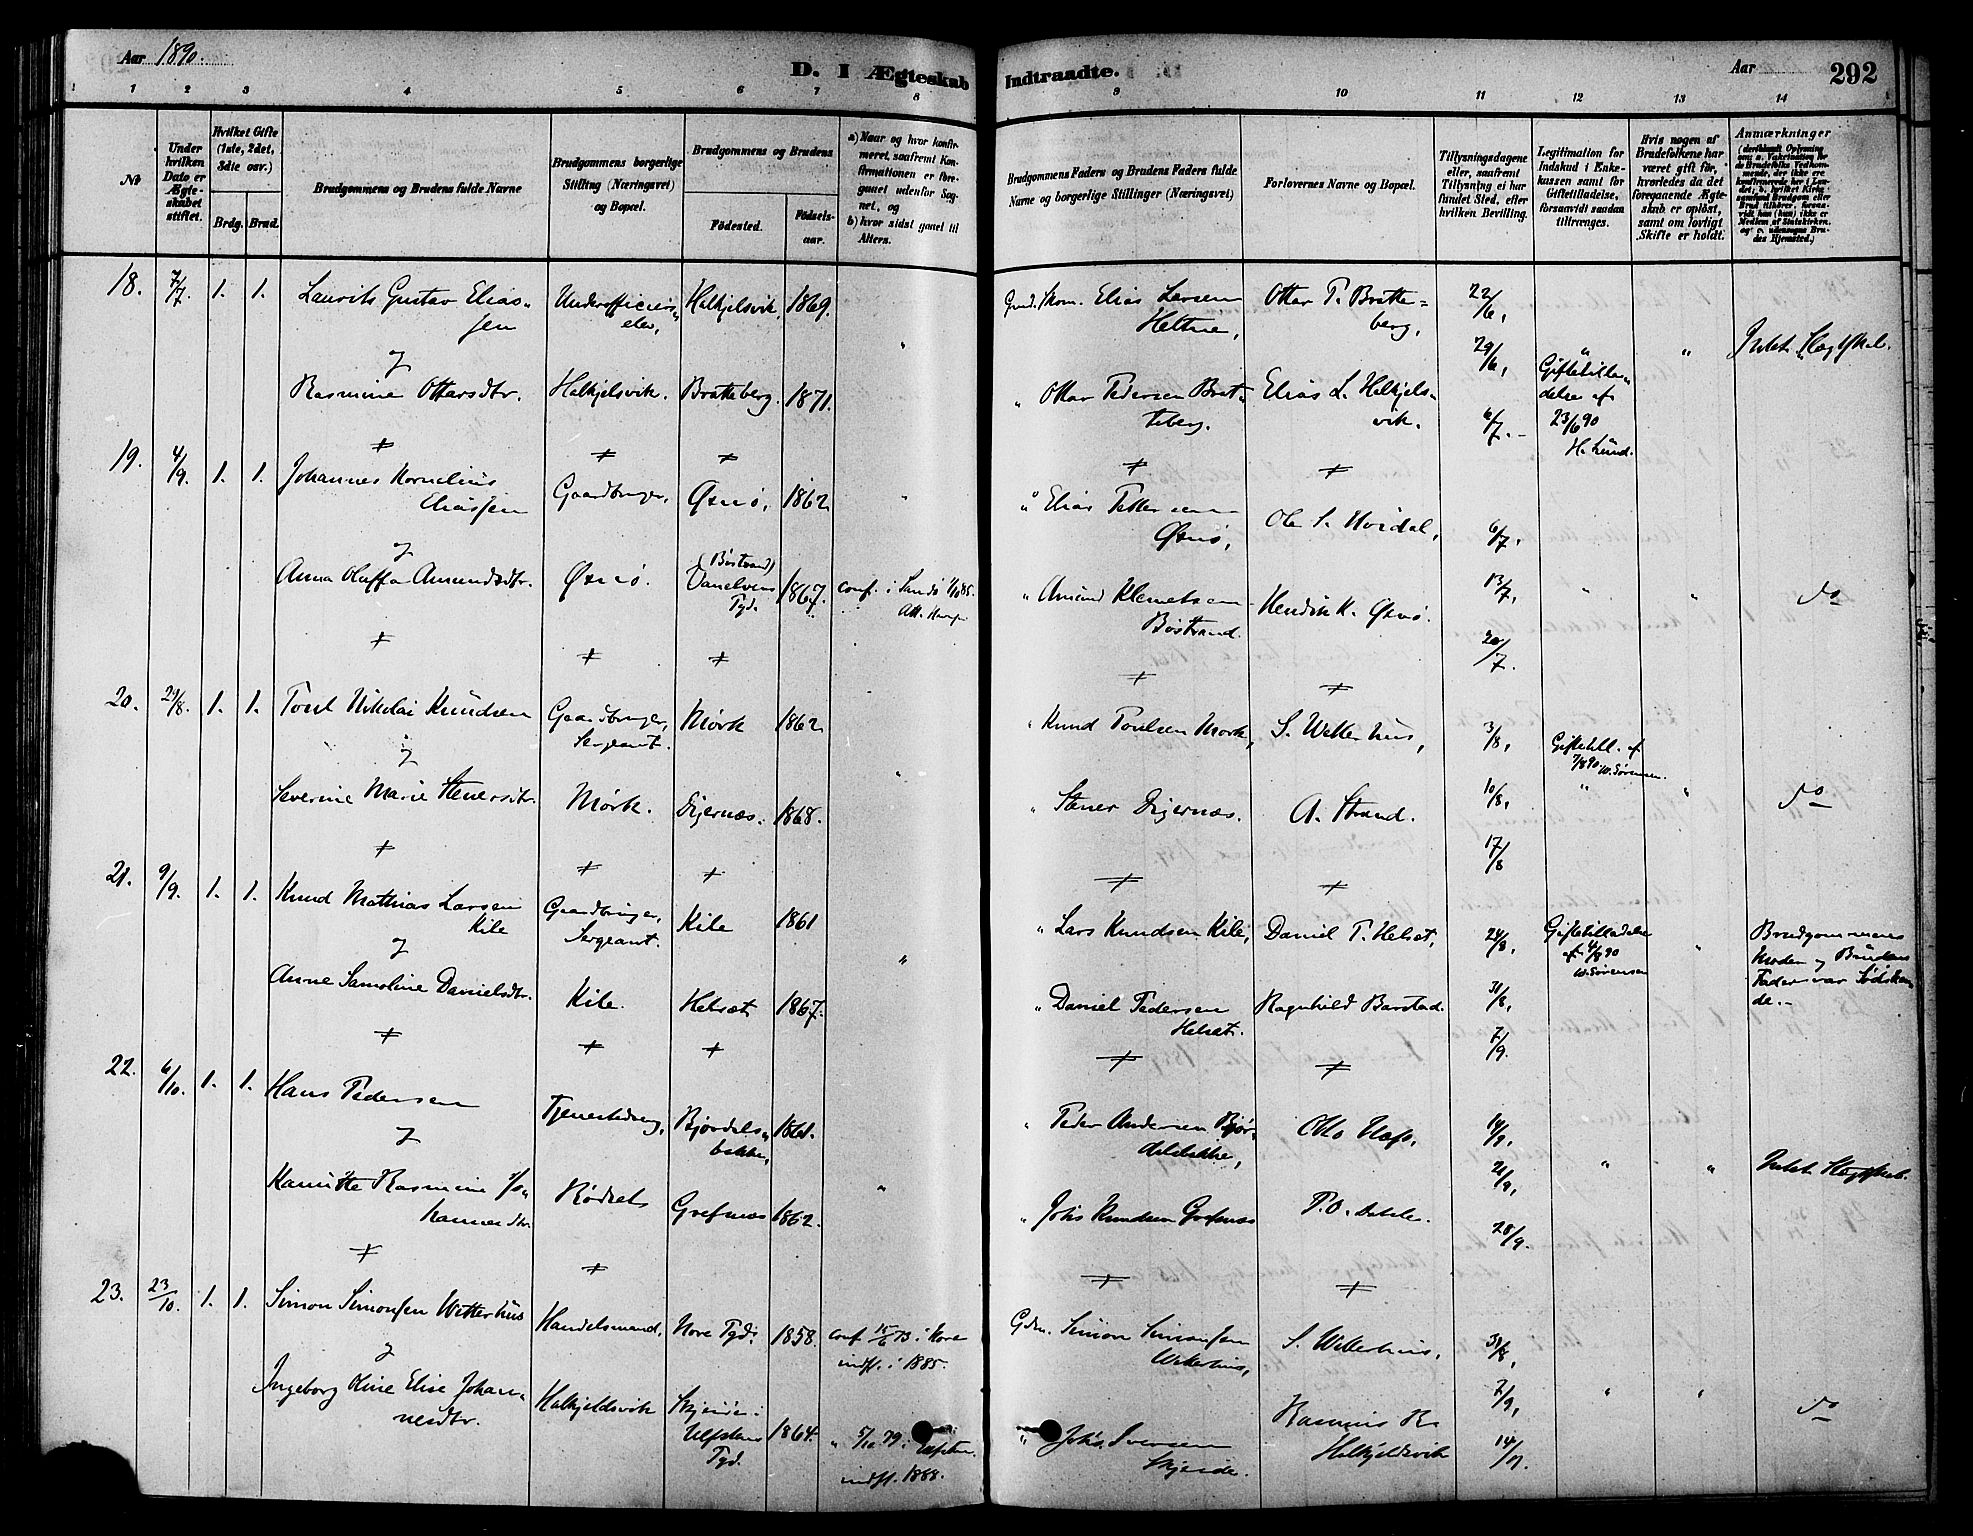 Aar 1890.
D. I Ægteskab Indtraadte.
Aar
292
1 2 3 4 5 6 7 8 9 10 11 12 13 14
№
Under hvilken Dato er Ægteskabet stiftet.
Hvilket Gifte (1ste, 2det, 3die osv.)
Brdg. Brud.
Brudgommens og Brudens fulde Navne
Brudgommens borgerlige Stilling (Næringsvei) og Bopæl.
Brudgommens og Brudens
Fødested.
Fødselsaar.
a) Naar og hvor konfirmeret, saafremt Konfirmationen er foregaaet udenfor Sognet, og
b) hvor sidst gaaet til Alters.
Brudgommens Faders og Brudens Faders fulde Navne og borgerlige Stillinger (Næringsvei)
Forlovernes Navne og Bopæl.
Tillysningsdagene eller, saafremt Tillysning ei har fundet Sted, efter hvilken Bevilling.
Legitimation for Indskud i Enkekassen samt for Giftetilladelse, forsaavidt saadan tiltrænges.
Hvis nogen af Brudefolkene har været gift før, hvorledes da det foregaaende Ægteskab er opløst, samt om lovligt Skifte er holdt.
Anmærkninger
18. 7/7. 1. 1. Laurits Gustav Eliassen Underofficierselev, Halkjelsvik. 1869. Elias Larsen Heltne, Ottar P. Bratteberg, 22/6,
29/6,
og
Rasmine Ottarsdtr. Halkjelsvik. Bratteberg. 1871. " Ottar Pedersen Bratteberg. Elias L. Halkjelsvik. 6/7. Giftetilladelse af 23/6 90 H. Lund.
19. 4/9. 1. 1. Johannes Kornelius Eliassen Gaardbruger, 1862 " Elias Petersen Ole S. Hovdal, 6/7.
og
Anna Oluffa Amundsdtr. (Bøstrand) Vanelvens Pgd. 1867. conf. i Sande " Amund Klemetsen Bøstrand. 13/7, do
20/7.
20. 1. 1. Poul Nikolai Knudsen Gaardbruger, Sergeant. Mørk 1862 " Knud Poulsen Mork, S. Witterhus, 3/8, Giftetill. af 7/8 90 W. Sørensen.
og
Severine Marie Stenersdtr. Mørk. Digernæs. 1868. " Stener Digernæs. A. Strand. 10/8, do
17/8
21. 9/9. 1. 1. Knud Mathias Larsen Kile Gaardbruger, Sergeant. Kile 1861 " Lars Knudsen Kile, Daniel P. Helset, 24/8, Giftetilladelse af 4/8 90 W. Sørensen Brudgommens Moder og Brudens Fader var Sødskende.
og
Anne Samoline Danielsdtr. Kile. Helset 1867. " Daniel Pedersen Helset. Ragnhild Barstad. 31/8,
7/9.
22. 6/10. 1. 1. Hans Pedersen Tjenestedreng, Bjørdalsbakke, 1861. " Peder Andersen Bjørdalsbakke, 14/9,
og
Rasmine Johannesdtr. Rødset Grefsnæs 1862. " Johs Knudsen Grefsnæs 21/9,
28/9.
23. 23/10. 1. 1. Simon Simonsen Witterhus Handelsmand, Vore Pgd. 1858. conf. 15/6 73 i Vore indfl. i 1885. Gdm. Simon Simonsen Witterhus, S. Witterhus, 31/8,
og
Ingeborg Oline Elise Johannesdtr. Halkjeldsvik Ulfsten Pgd. 1864. " 5/10 79 i Ulfsten indfl. 1888. " Johs. Iversen Rasmus R. Halkjeldsvik 7/9, do
14/9.